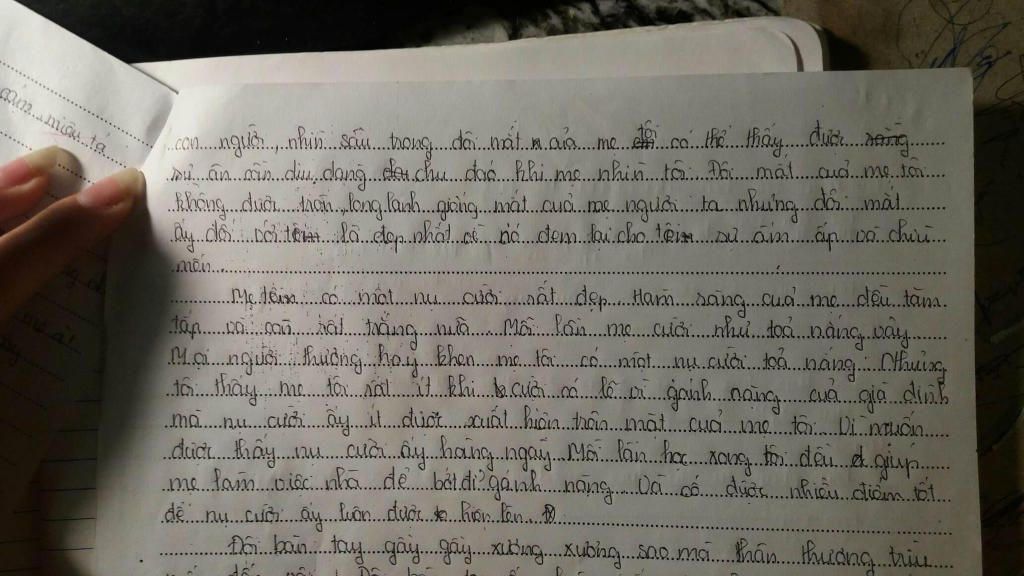 cảm miêu tả
con người, nhìn sâu trong đôi mắt của mẹ tôi có thể thấy được
sự ân cần dịu dàng chu đáo khi mẹ nhìn tôi. Đôi mắt của mẹ tôi
không được tròn, long lanh giống mắt của mẹ người ta nhưng đôi mắt
ấy đối với tôi là đẹp nhất vì nó đem lại cho tôi sự ấm áp và chìu
mến.
Mẹ tôi có một nụ cười rất đẹp. Hàm răng của mẹ đều tăm
tấp và còn rất trắng nữa. Mỗi lần mẹ cười như toả nắng vậy
Mọi người thường hay khen mẹ tôi có một nụ cười toả nắng. Nhưng
tôi thấy mẹ tôi rất ít khi cười có lẽ vì gánh nặng của gia đình
mà nụ cười ấy ít được xuất hiện trên mặt của mẹ tôi. Vì muốn
được thấy nụ cười ấy hàng ngày Mỗi lần học xong tôi đều giúp
mẹ làm việc nhà để bớt đi gánh nặng. Và có được nhiều điểm tốt
để nụ cười ấy luôn được hiện lên.
Đôi bàn tay gầy gầy xương xương sao mà thân thương trìu